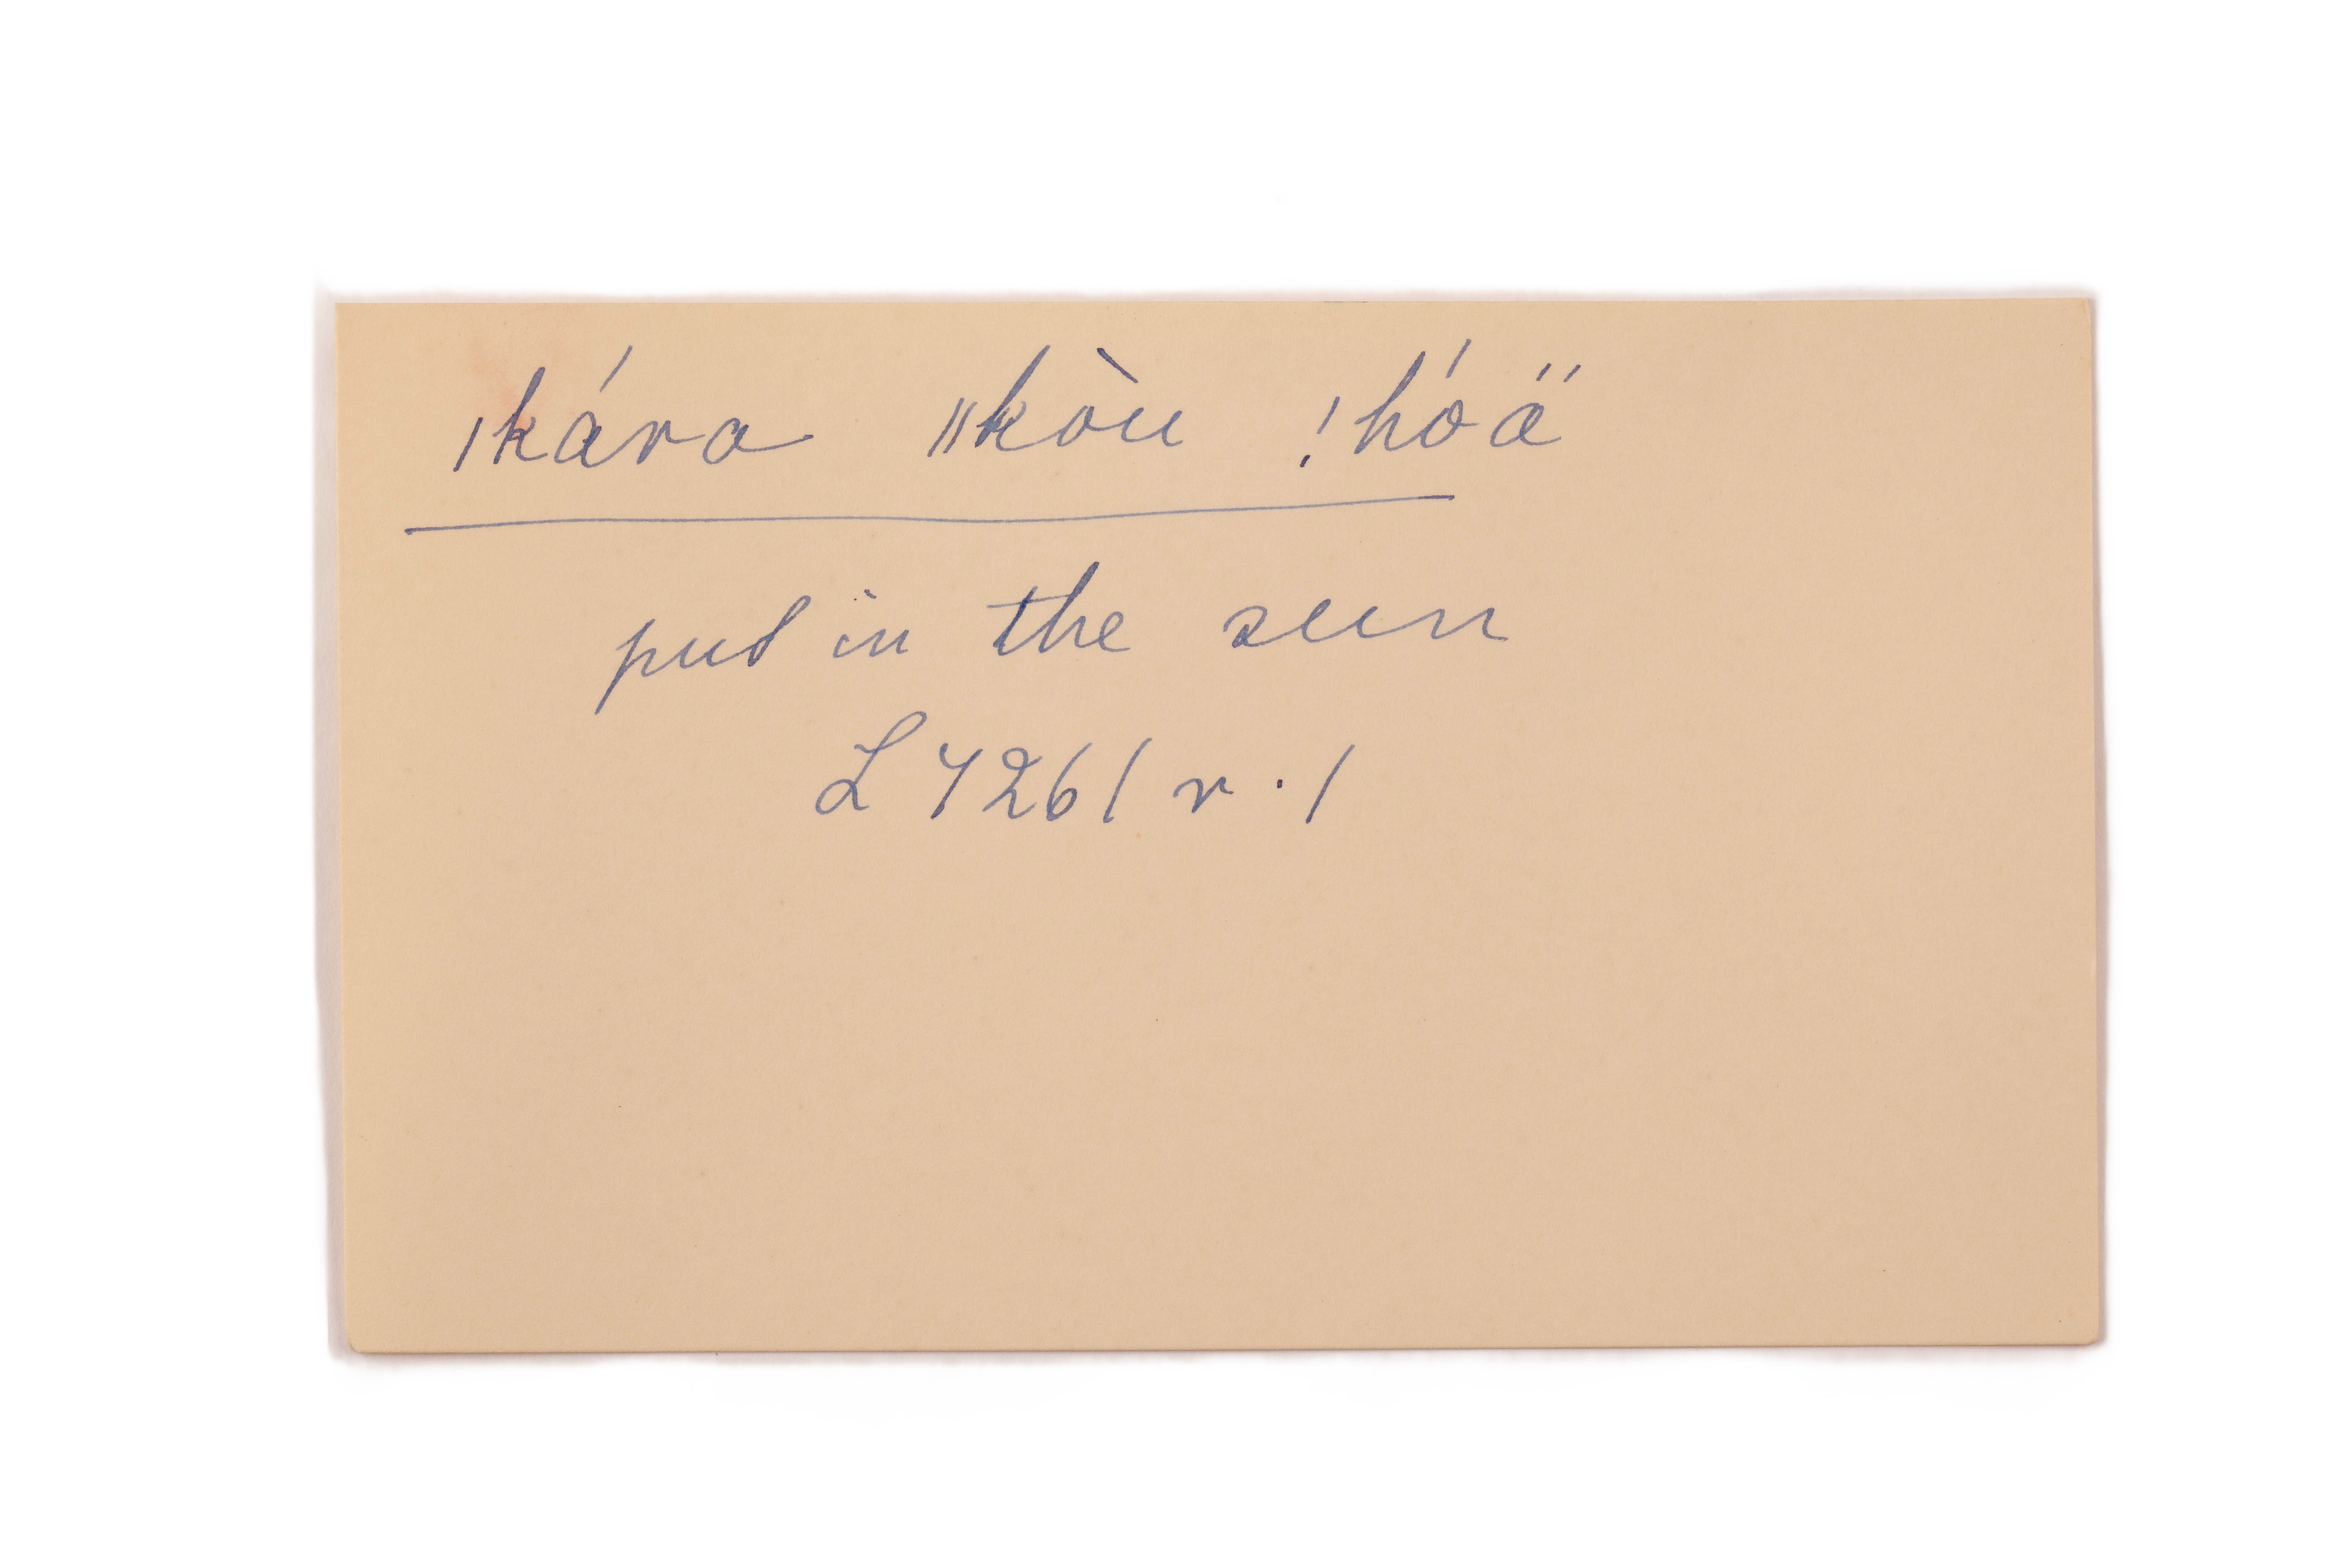 ǀkára ǁkòu !hóä
put in the sun
L 7261 r. 1